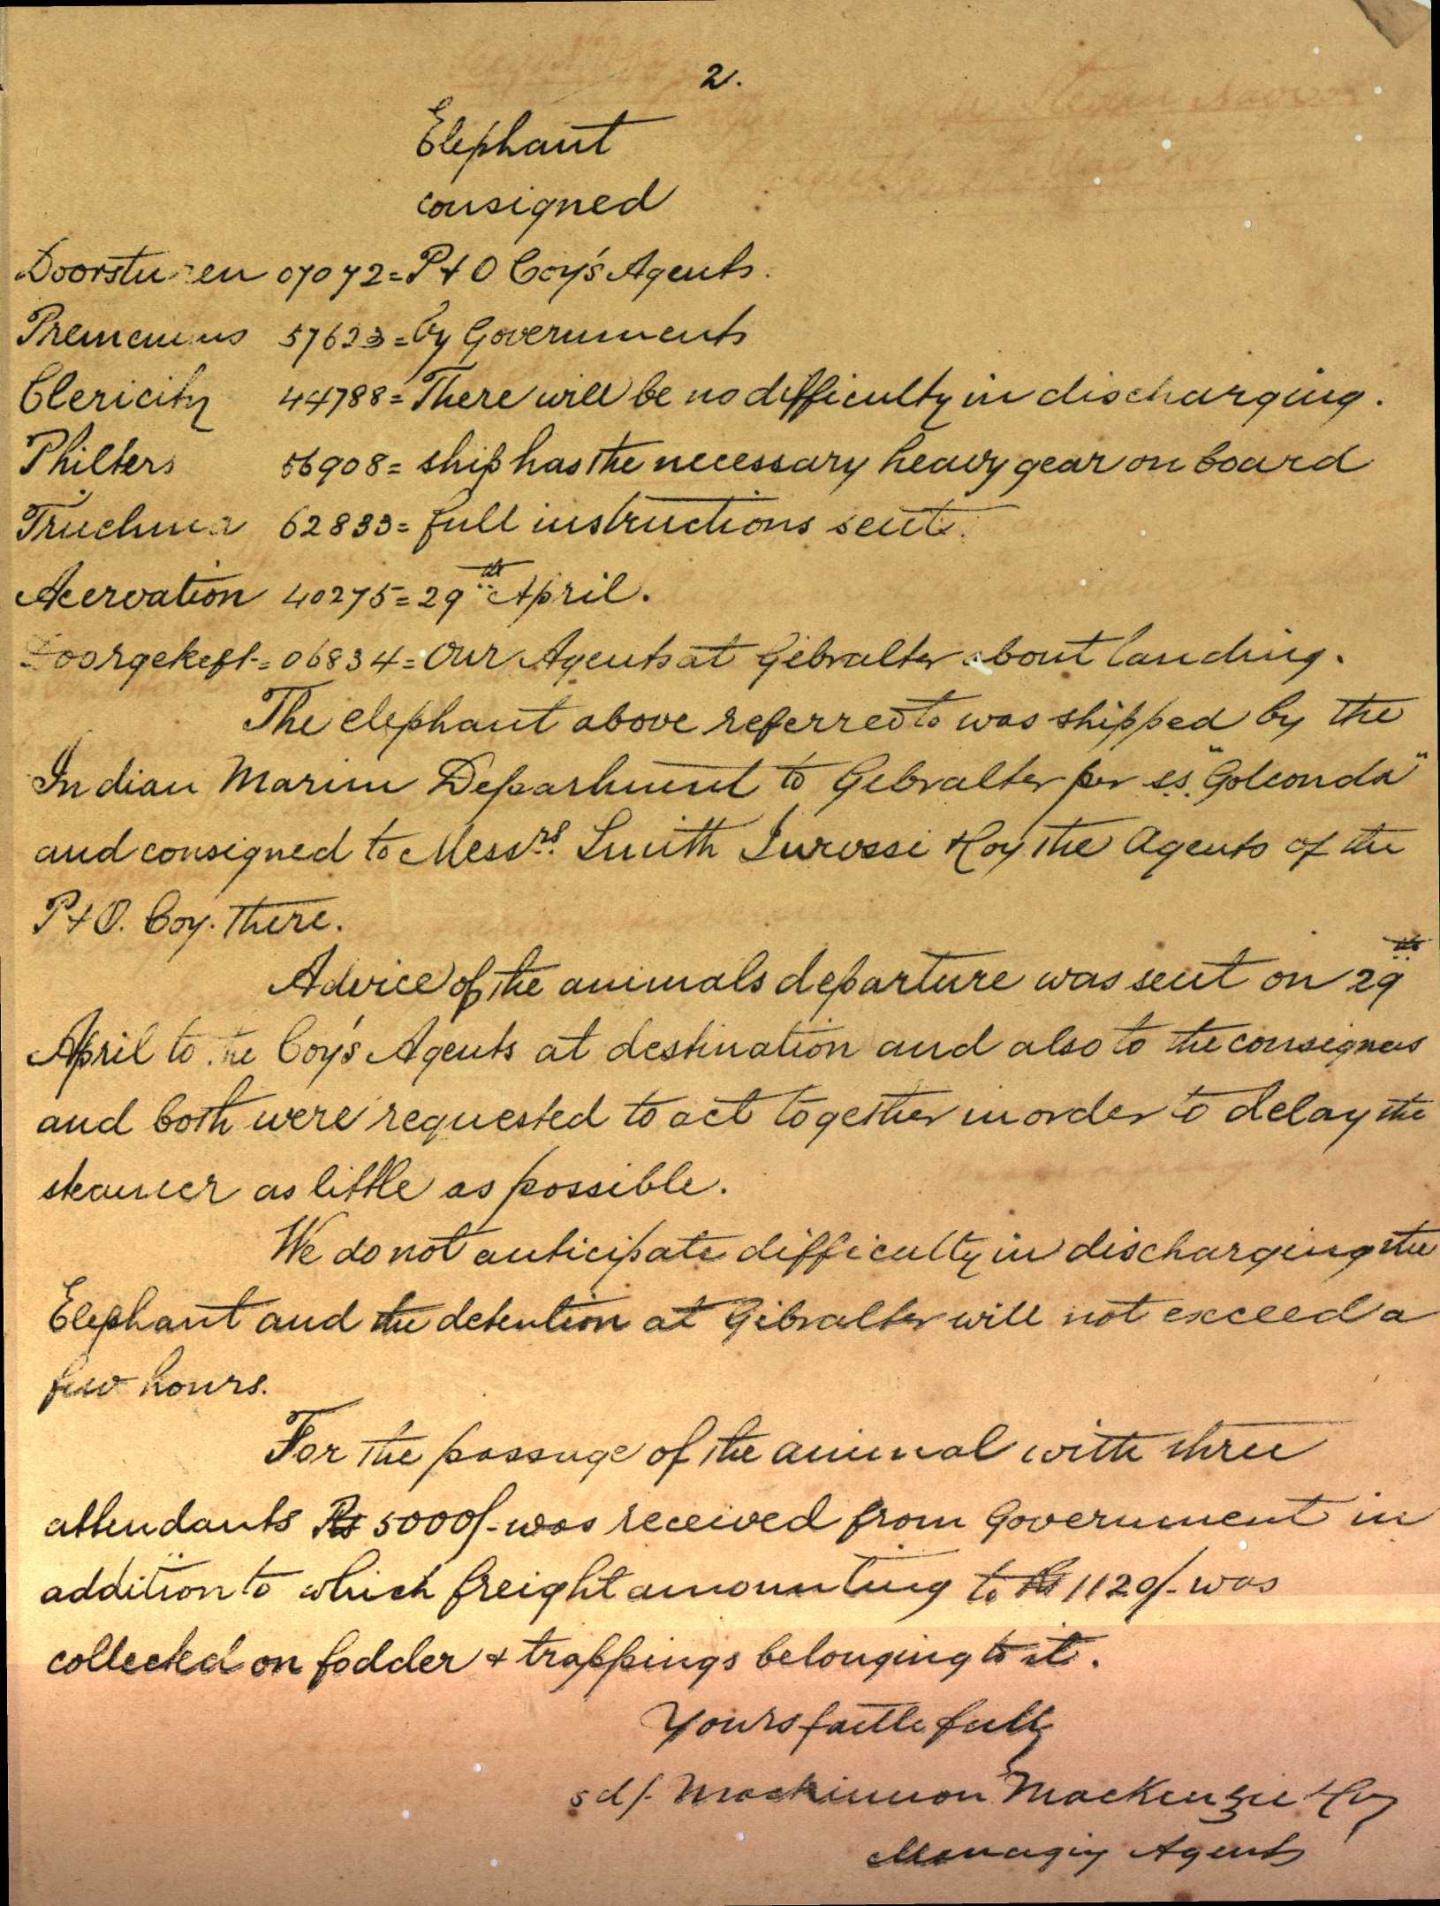 2.
Elephant
consigned
Doorstu en 07072 = P & O Coy's Agents.
57623 = by Governments
Clericity 44788 = There will be no difficulty in discharging.
Philters 56908 = ship has the necessary heavy gear on board
62833 = full instructions sent.
Acervation 40275 = 29th April.
06834 = Our Agents at Gibralter about landing.
The elephant above referred to was shipped by the
Indian Marine Department to Gibralter per s.s. "Golconda"
and consigned to Messrs. Smith & Coy the Agents of the
P & O. Coy. there.
Advice of the animals departure was sent on 29th
April to the Coy's Agents at destination and also to the consignees
and both were requested to act together in order to delay the
steamer as little as possible.
We do not anticipate difficulty in discharging the
Elephant and the detention at Gibralter will not exceed a
few hours.
For the passage of the animal with three
attendants Rs 5000/- was received from Government in
addition to which freight amounting to Rs 1120/- was
collected on fodder & trappings belonging to it.
Yours faithfully
sd/- Mackinnon Mackenzie & Coy
Managing Agents